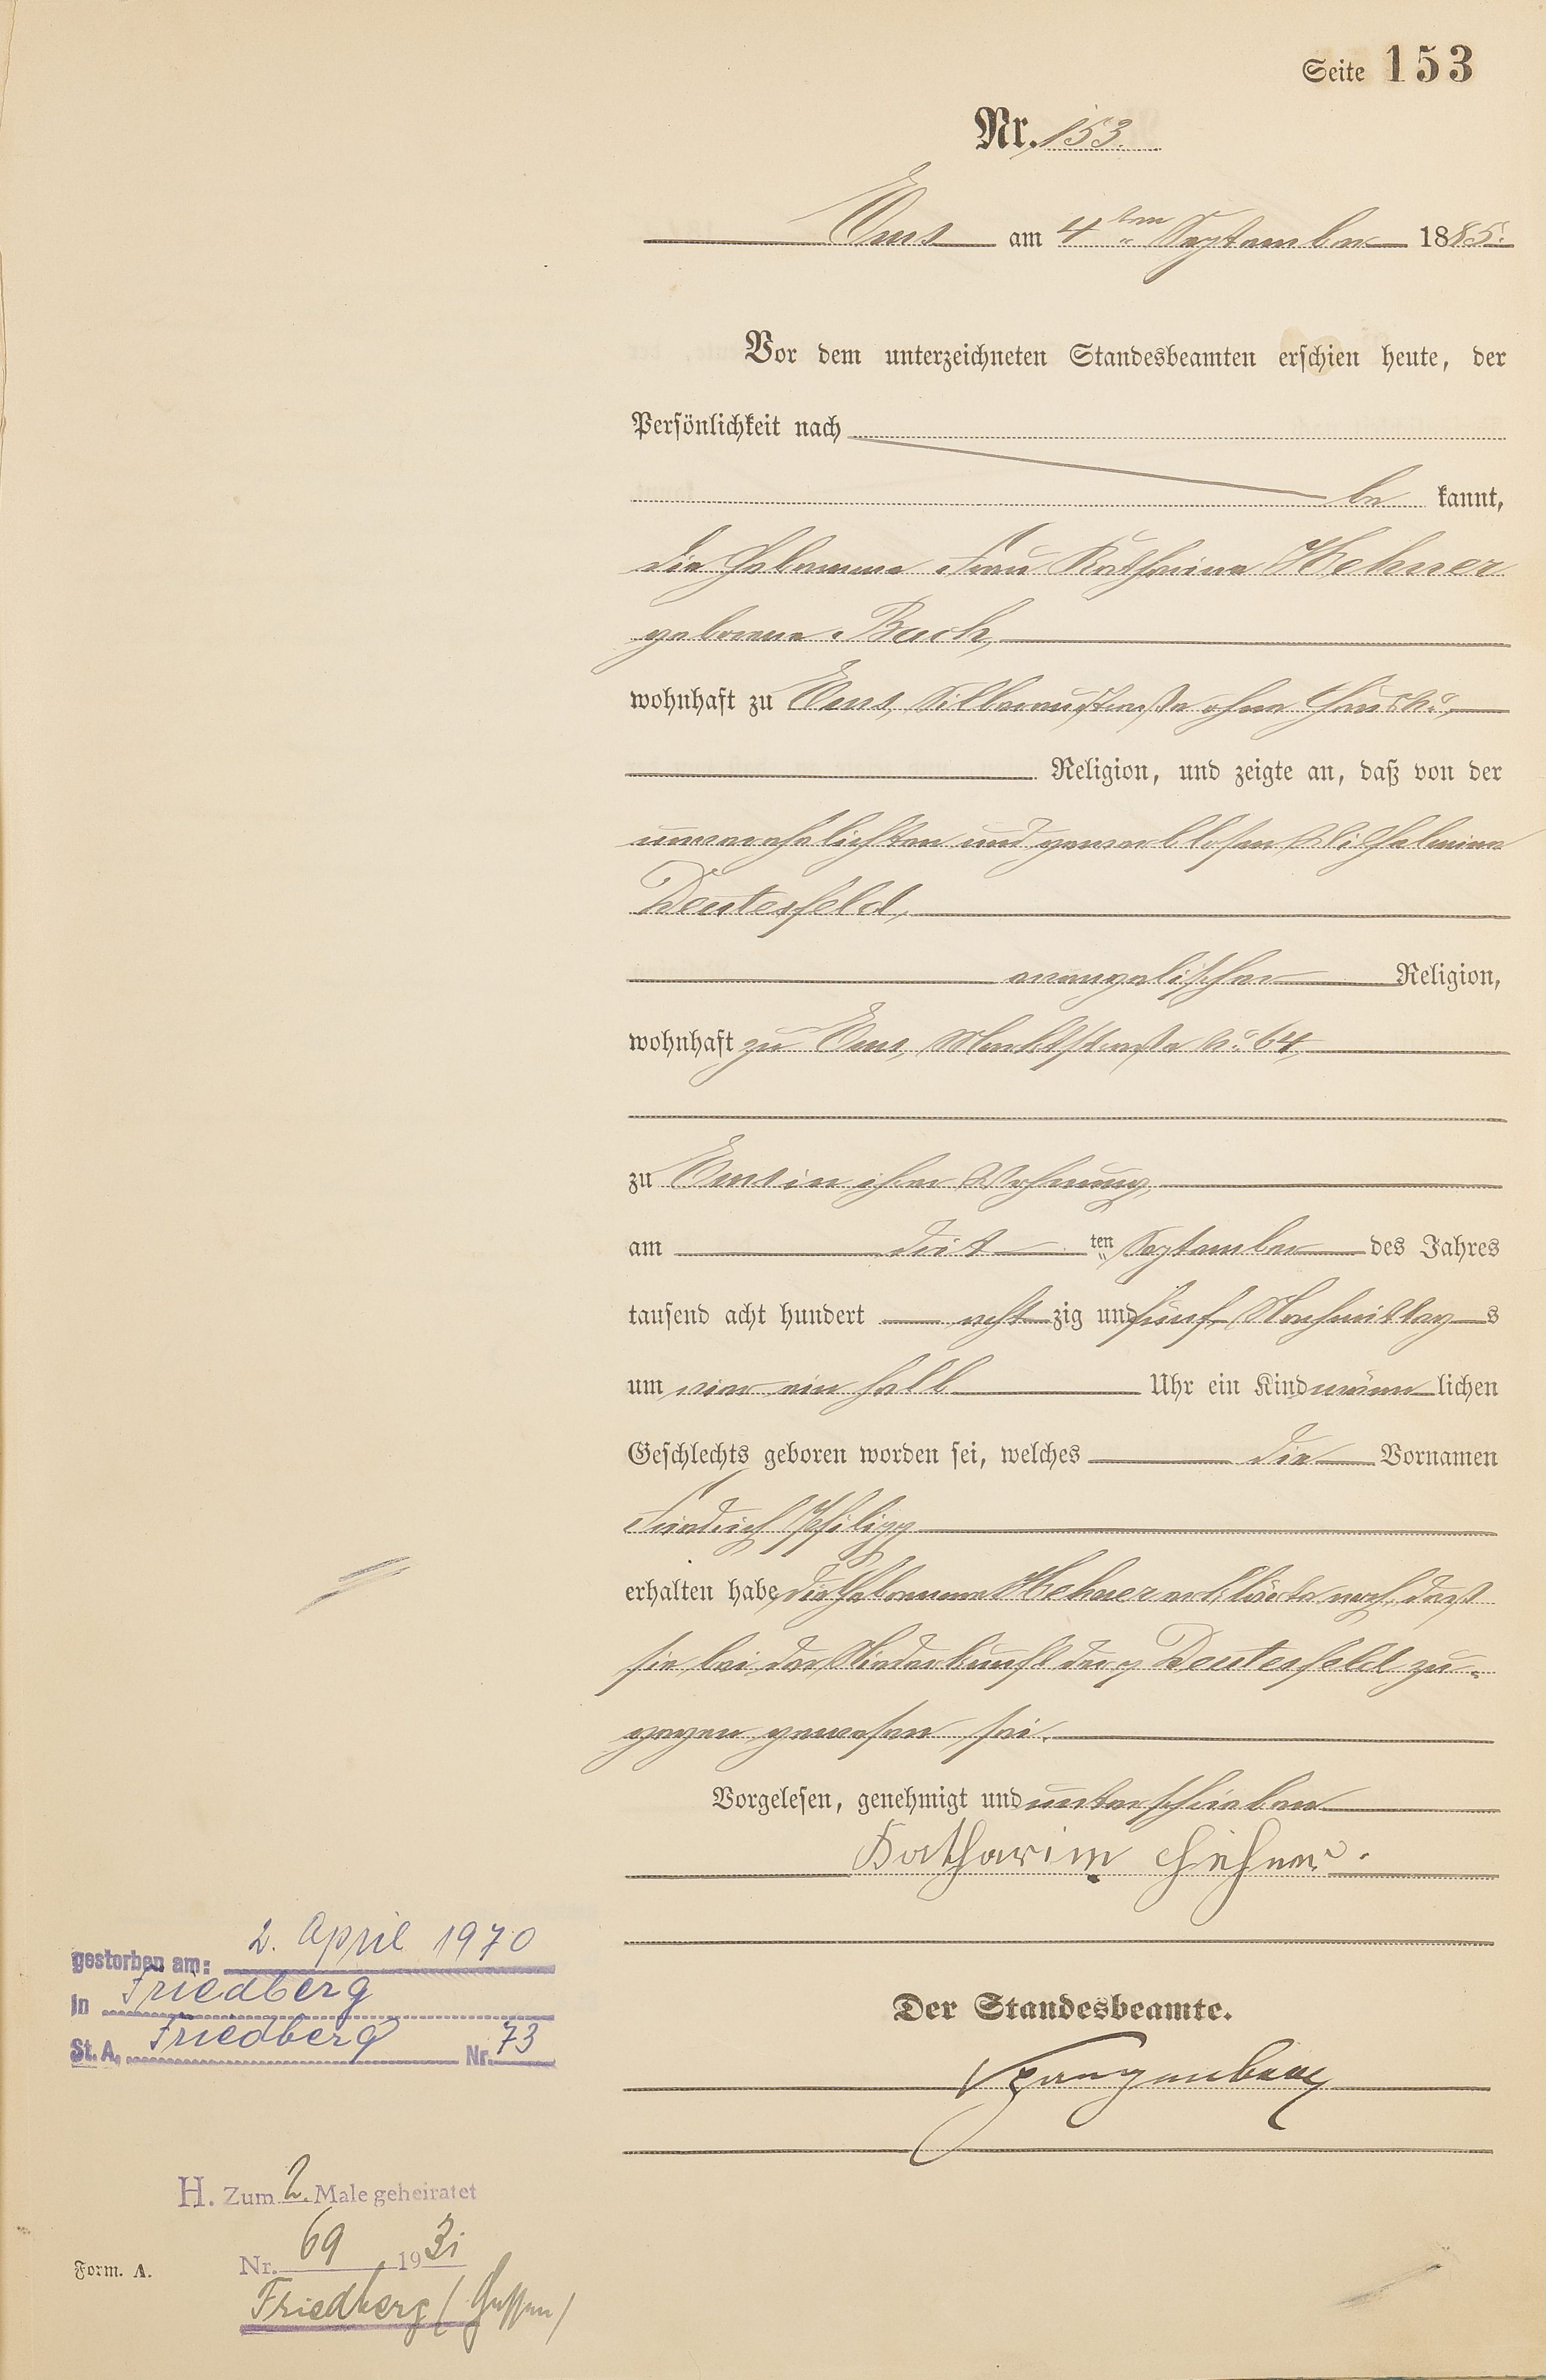 Seite 153
Nr. 153.
Ems am 4ten September 1885.
Vor dem unterzeichneten Standesbeamten erschien heute, der
Persönlichkeit nach
be kannt,
die Hebamme Frau Katharina Hehner
geborene Bach,
wohnhaft zu Ems, Silberaustraße ohne Haus No,
Religion, und zeigte an, daß von der
unverehelichten und gewerblosen Wilhelmine
Deutesfeld,
evangelischer Religion,
wohnhaft zu Ems, Marktstraße No 64,
zu Ems in ihrer Wohnung,
am dritten September des Jahres
tausend acht hundert achtzig und fünf Nachmittags
um vier ein halb Uhr ein Kind männlichen
Geschlechts geboren worden sei, welches die Vornamen
Friedrich Philipp
erhalten habe, die Hebamme Hehner erklärte noch, daß
sie bei der Niederkunft der p Deutesfeld zu-
gegen gewesen sei.
Vorgelesen, genehmigt und unterschrieben
Katharina Hehner.
Der Standesbeamte.
Spangenberg
gestorben am: 2. April 1970
in Friedberg
St. A. Friedberg Nr. 73
H. Zum 2. Male geheiratet
Nr. 69 1931
Friedberg (Hessen)
Form. A.